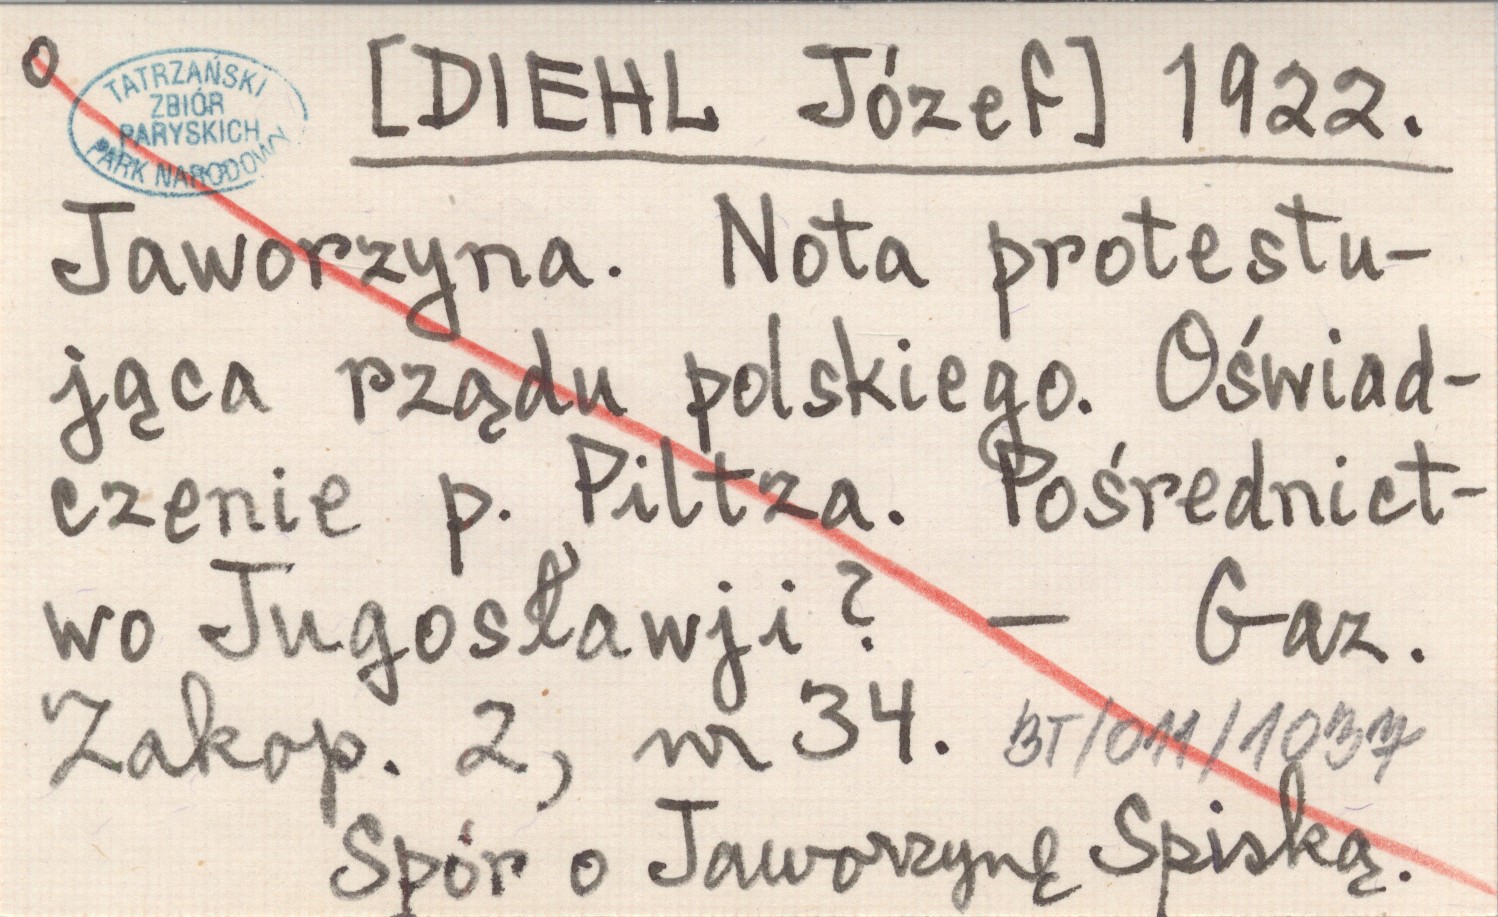 O
TATRZAŃSKI
ZBIÓR
PARYSKICH
PARK NARODOWY
[DIEHL Józef] 1922.
Jaworzyna. Nota protestu-
jąca rządu polskiego. Oświad-
czenie p. Piltza. Pośrednict-
wo Jugosławji? — Gaz.
Zakop. 2, nr 34. BT/011/1037
Spór o Jaworzynę Spiską.